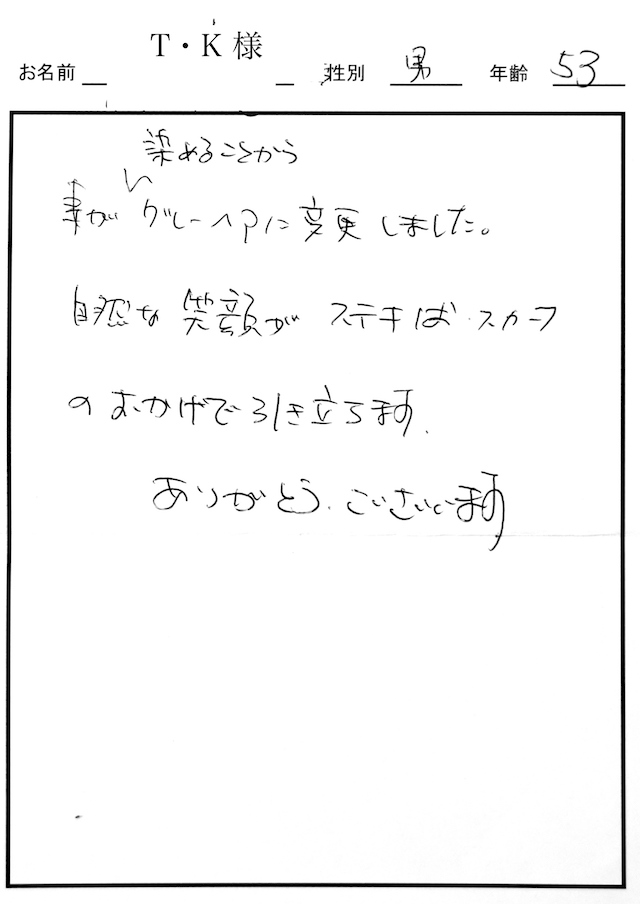 お名前 T・K様 性別 男 年齢 53
染めることから
妻がグレーヘアに変更しました。
自然な笑顔が ステキば・スカーフ
のおかげで引き立ちます.
ありがとう.ございます